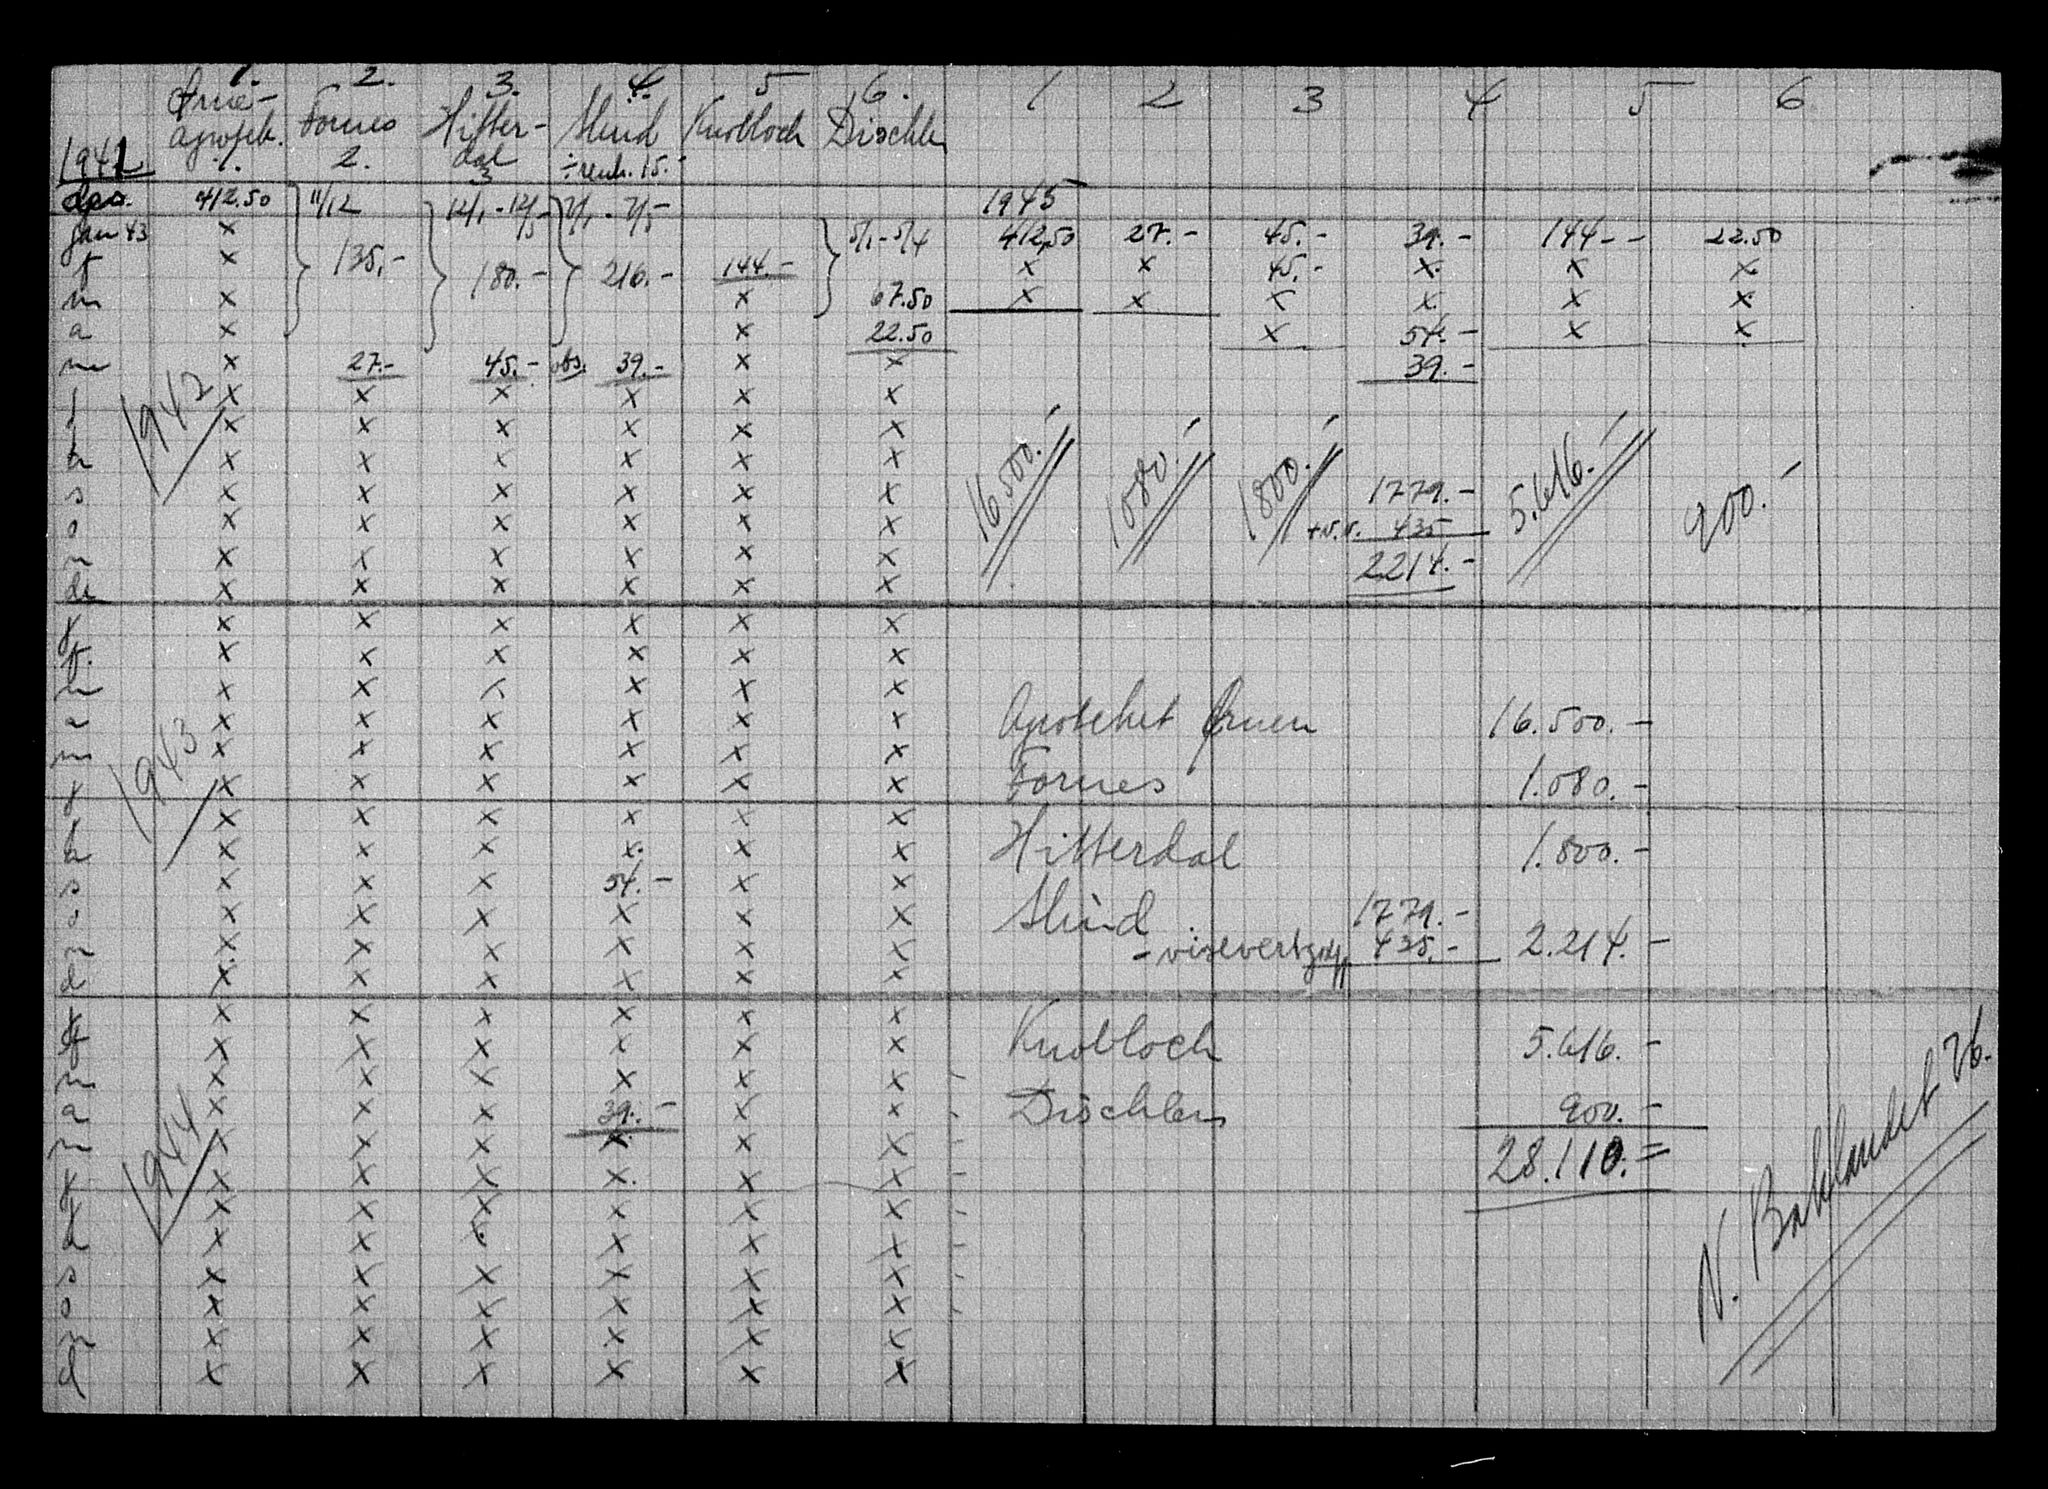 1. 2. 3. 4. 5 6. 1 2 3 4 5 6
Fornes Hitter- Knobloch
dal
1941 1. 2. 3 15.-
des. 412.50 11/12 12/1 - 12/5 7/1 - 7/5 1945
jan 43 x 5/1 - 5/4 412,50 27.- 45.- 39.- 144.- 22.50
f x 135,- 180.- 216.- 144.- x x 45.- x x x
m x x 67.50 x x x x x x
a x x 22.50 x 54.- x x
m x 27.- 45.- obs. 39.- x x 39.-
j x x x x x x
j x x x x x x
a x x x x x x
s x x x x x x
o x x x x x x
n x x x x x x
de x x x x x x
1942
16.500.- 1080.- 1800.- 1779.- 5.616.- 900.-
+v.v. 435
2214.-
j x x x x x x
f. x x x x x x
m x x x x x x
a x x x x x x
m x x x x x x
j x x x x x x
x x x x x x
a x x x x x x
s x x x 54.- x x
o x x x x x x
n x x x x x x
d x x x x x x
1943
j x x x x x x
f x x x x x x
m x x x x x x
a x x x 39.- x x
m x x x x x x
j x x x x x x
j x x x x x x
a x x x x x x
s x x x x x x
o x x x x x x
n x x x x x x
d x x x x x x
1944
Apotheket 16.500.-
Fornes 1.080.-
Hitterdal 1.800.-
1779.-
435.- 2.214.-
Knobloch 5.616.-
Dischlers 900.-
28.110.=
N. Baklandet 26.